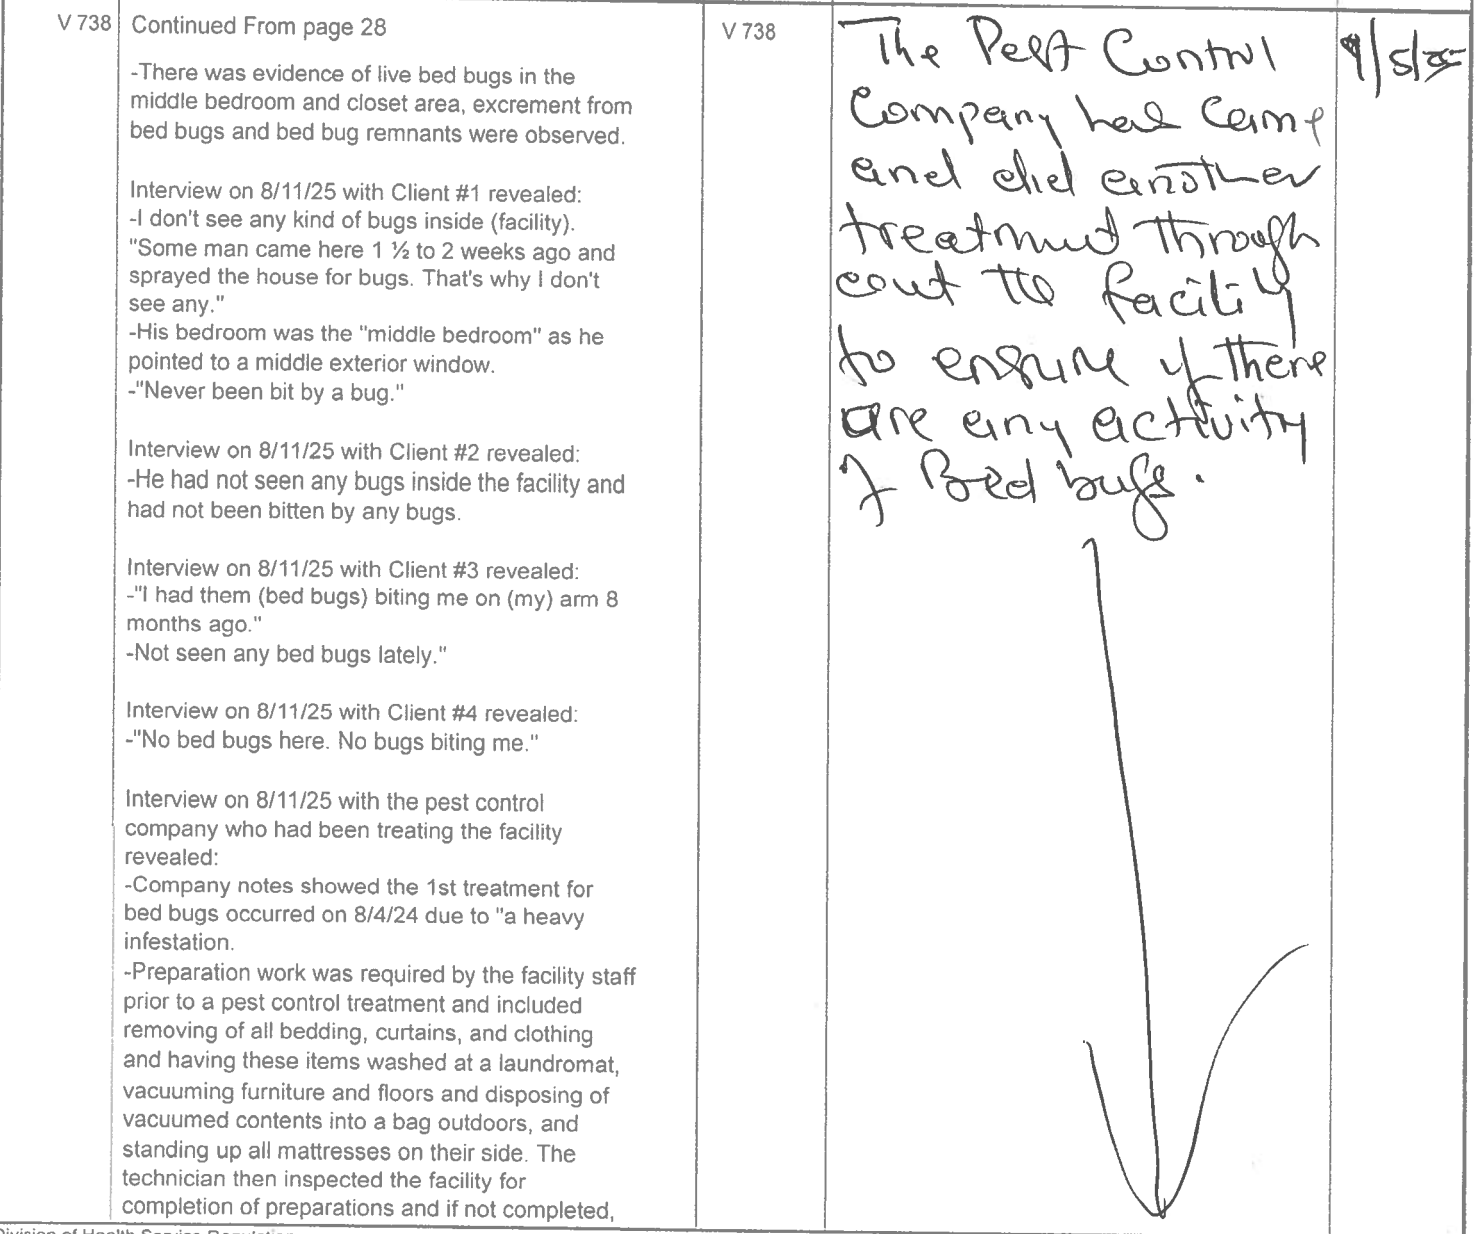 V 738
Continued From page 28
-There was evidence of live bed bugs in the
middle bedroom and closet area, excrement from
bed bugs and bed bug remnants were observed.
Interview on 8/11/25 with Client #1 revealed:
-I don't see any kind of bugs inside (facility).
"Some man came here 1 ½ to 2 weeks ago and
sprayed the house for bugs. That's why I don't
see any."
-His bedroom was the "middle bedroom" as he
pointed to a middle exterior window.
-"Never been bit by a bug."
Interview on 8/11/25 with Client #2 revealed:
-He had not seen any bugs inside the facility and
had not been bitten by any bugs.
Interview on 8/11/25 with Client #3 revealed:
-"I had them (bed bugs) biting me on (my) arm 8
months ago."
-Not seen any bed bugs lately."
Interview on 8/11/25 with Client #4 revealed:
-"No bed bugs here. No bugs biting me."
Interview on 8/11/25 with the pest control
company who had been treating the facility
revealed:
-Company notes showed the 1st treatment for
bed bugs occurred on 8/4/24 due to "a heavy
infestation.
-Preparation work was required by the facility staff
prior to a pest control treatment and included
removing of all bedding, curtains, and clothing
and having these items washed at a laundromat,
vacuuming furniture and floors and disposing of
vacuumed contents into a bag outdoors, and
standing up all mattresses on their side. The
technician then inspected the facility for
completion of preparations and if not completed,
V 738
The Pest Control
Company had came
and did another
treatment through
out the facility
to ensure if there
are any activity
of Bed bugs.
9/5/25
Division of Health Service Regulation